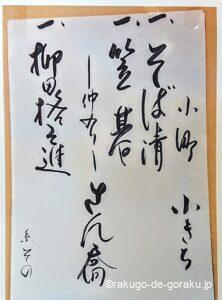 小町　小きち
一、そば清
一、笠碁
―仲入り―　さん喬
一、柳田格之進
糸 その
©rakugo-de-goraku.jp